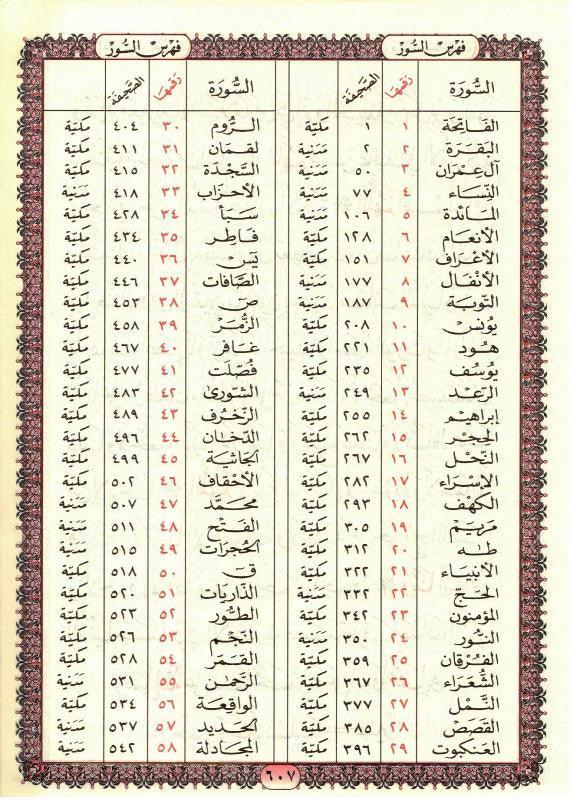 فهرس السُّور
السُّورَة رقمها الصَّحيفَة
الفَاتِحَة ١ ١ مكيّة
البَقَرَة ٢ ٢ مَدَنية
آل عِمْرَان ٣ ٥٠ مَدَنية
النِّسَاء ٤ ٧٧ مَدَنية
المَائدَة ٥ ١٠٦ مَدَنية
الأنعَام ٦ ١٢٨ مكيّة
الأعْرَاف ٧ ١٥١ مكيّة
الأنفَال ٨ ١٧٧ مَدَنية
التوبَة ٩ ١٨٧ مَدَنية
يُونس ١٠ ٢٠٨ مكيّة
هُود ١١ ٢٢١ مكيّة
يُوسُف ١٢ ٢٣٥ مكيّة
الرّعد ١٣ ٢٤٩ مَدَنية
إبراهيم ١٤ ٢٥٥ مكيّة
الحِجر ١٥ ٢٦٢ مكيّة
النّحل ١٦ ٢٦٧ مكيّة
الإسرَاء ١٧ ٢٨٢ مكيّة
الكهف ١٨ ٢٩٣ مكيّة
مَريَم ١٩ ٣٠٥ مكيّة
طه ٢٠ ٣١٢ مكيّة
الأنبيَاء ٢١ ٣٢٢ مكيّة
الحَجّ ٢٢ ٣٣٢ مَدَنية
المؤمنون ٢٣ ٣٤٢ مكيّة
النُّور ٢٤ ٣٥٠ مَدَنية
الفُرقان ٢٥ ٣٥٩ مكيّة
الشُّعَرَاء ٢٦ ٣٦٧ مكيّة
النَّمل ٢٧ ٣٧٧ مكيّة
القَصَص ٢٨ ٣٨٥ مكيّة
العَنكبوت ٢٩ ٣٩٦ مكيّة
فهرس السُّور
السُّورَة رقمها الصَّحيفَة
الرُّوم ٣٠ ٤٠٤ مكيّة
لقمَان ٣١ ٤١١ مكيّة
السَّجْدَة ٣٢ ٤١٥ مكيّة
الأحزَاب ٣٣ ٤١٨ مَدَنية
سَبَأ ٣٤ ٤٢٨ مكيّة
فَاطِر ٣٥ ٤٣٤ مكيّة
يٓسٓ ٣٦ ٤٤٠ مكيّة
الصَّافات ٣٧ ٤٤٦ مكيّة
صٓ ٣٨ ٤٥٣ مكيّة
الزُّمَر ٣٩ ٤٥٨ مكيّة
غَافر ٤٠ ٤٦٧ مكيّة
فُصِّلَت ٤١ ٤٧٧ مكيّة
الشورىٰ ٤٢ ٤٨٣ مكيّة
الزّخرُف ٤٣ ٤٨٩ مكيّة
الدّخَان ٤٤ ٤٩٦ مكيّة
الجَاثيَة ٤٥ ٤٩٩ مكيّة
الأحقاف ٤٦ ٥٠٢ مكيّة
محمَّد ٤٧ ٥٠٧ مَدَنية
الفَتْح ٤٨ ٥١١ مَدَنية
الحُجرات ٤٩ ٥١٥ مَدَنية
قٓ ٥٠ ٥١٨ مكيّة
الذّاريَات ٥١ ٥٢٠ مكيّة
الطّور ٥٢ ٥٢٣ مكيّة
النّجْم ٥٣ ٥٢٦ مكيّة
القَمَر ٥٤ ٥٢٨ مكيّة
الرَّحمٰن ٥٥ ٥٣١ مَدَنية
الواقِعَة ٥٦ ٥٣٤ مكيّة
الحديد ٥٧ ٥٣٧ مَدَنية
المجَادلة ٥٨ ٥٤٢ مَدَنية
٦٠٧